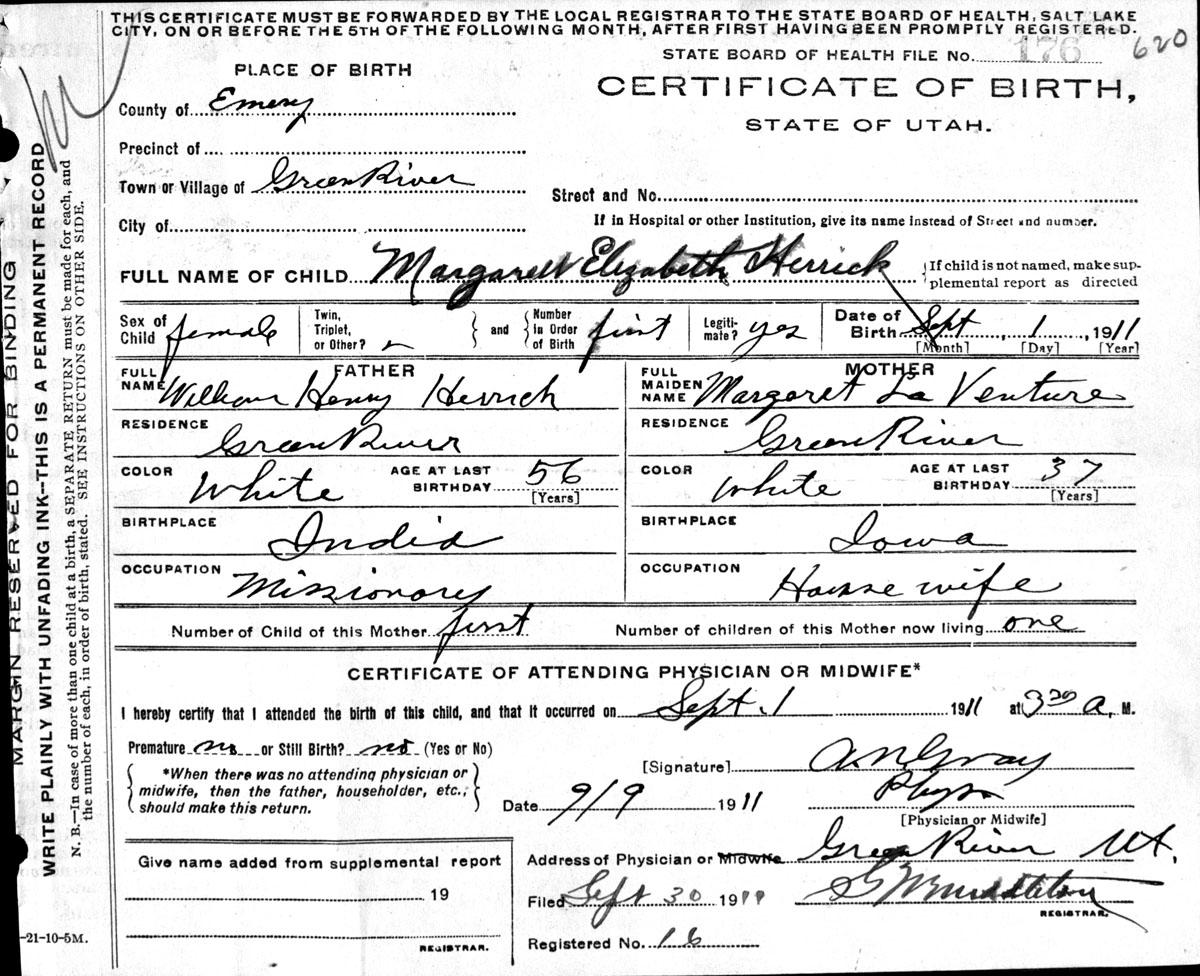 THIS CERTIFICATE MUST BE FORWARDED BY THE LOCAL REGISTRAR TO THE STATE BOARD OF HEALTH, SALT LAKE
CITY, ON OR BEFORE THE 5TH OF THE FOLLOWING MONTH, AFTER FIRST HAVING BEEN PROMPTLY REGISTERED.
STATE BOARD OF HEALTH FILE No. 176 620
PLACE OF BIRTH
CERTIFICATE OF BIRTH,
STATE OF UTAH.
County of Emery
Precinct of
Town or Village of Green River
Street and No.
City of
If in Hospital or other Institution, give its name instead of Street and number.
FULL NAME OF CHILD Margaret Elizabeth Herrick
If child is not named, make sup-
plemental report as directed
Sex of Child female
Twin, Triplet, or Other?
and
Number In Order of Birth first
Legiti-mate? yes
Date of Birth Sept 1, 1911
[Month] [Day] [Year]
FATHER
FULL NAME William Henry Herrick
RESIDENCE Green River
COLOR White
AGE AT LAST BIRTHDAY 56 [Years]
BIRTHPLACE India
OCCUPATION Missionary
MOTHER
FULL MAIDEN NAME Margaret La Venture
RESIDENCE Green River
COLOR White
AGE AT LAST BIRTHDAY 37 [Years]
BIRTHPLACE Iowa
OCCUPATION House wife
Number of Child of this Mother first
Number of children of this Mother now living one
CERTIFICATE OF ATTENDING PHYSICIAN OR MIDWIFE*
I hereby certify that I attended the birth of this child, and that it occurred on Sept. 1 1911 at 3 30 a. M.
Premature no or Still Birth? no (Yes or No)
*When there was no attending physician or
midwife, then the father, householder, etc.,
should make this return.
[Signature] Gray
Phys
[Physician or Midwife]
Date 9/9 1911
Address of Physician or Midwife Green River Ut.
Filed Sept 30 1911 Middleton
REGISTRAR.
Registered No. 16
Give name added from supplemental report
19
REGISTRAR.
-21-10-5M.
MARGIN RESERVED FOR BINDING
WRITE PLAINLY WITH UNFADING INK--THIS IS A PERMANENT RECORD
N. B.—In case of more than one child at a birth, a SEPARATE RETURN must be made for each, and
the number of each, in order of birth, stated. SEE INSTRUCTIONS ON OTHER SIDE.